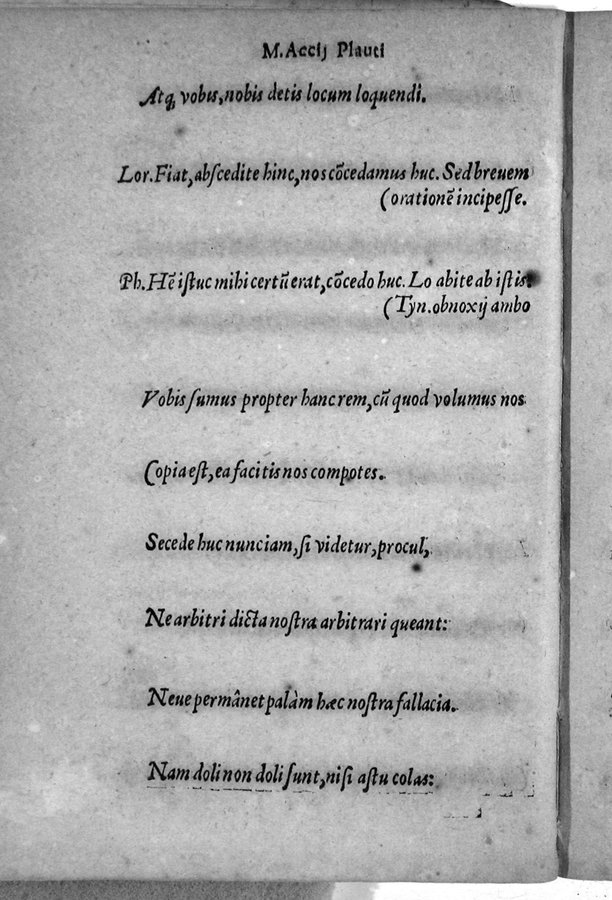 M. Accij Plauti
Atq; vobis, nobis detis locum loquendi.
Lor. Fiat, abscedite hinc, nos cõcedamus huc. Sed breuem
(orationẽ incipesse.
Ph. Hẽ istuc mihi certũ erat, cõcedo huc. Lo abite ab istis.
(Tyn. obnoxij ambo
Vobis sumus propter hanc rem, cũ quod volumus nos
Copia est, ea facitis nos compotes.
Secede huc nunciam, si videtur, procul,
Ne arbitri dicta nostra arbitrari queant:
Neue permânet palàm hæc nostra fallacia.
Nam doli non doli sunt, nisi astu colas: